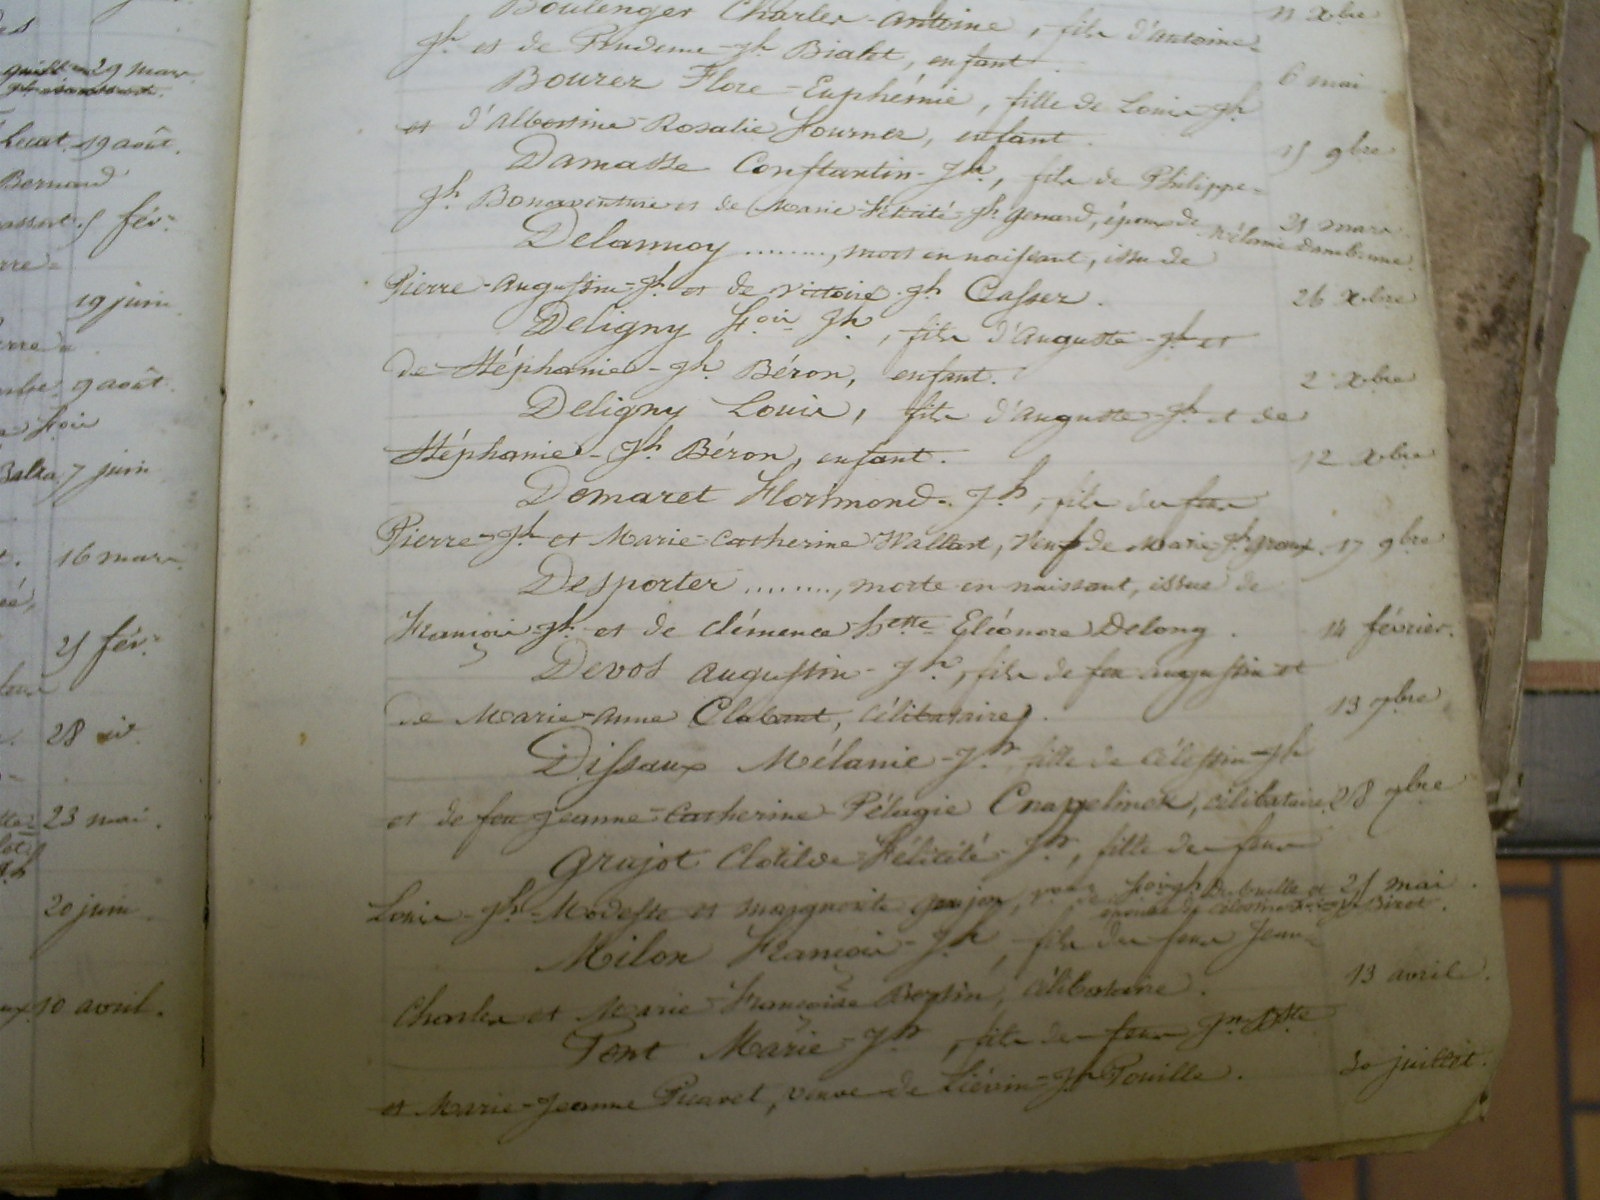 guill= 29 mars
Lecat. 19 août.
Bernard
5 fév.
19 juin
9 août.
7 juin
16 mars
25 fév.
28 
23 mai.
20 juin.
10 avril.
Boulenger Charles-Antoine, fils d'Antoine=
Jh et de Prudence-Jh Bialet, enfant. 11 Xbre
Bourez Flore-Euphémie, fille de Louis-Jh
et d'Albertine-Rosalie Fournez, enfant. 6 mai.
Damasse Constantin-Jh, fils de Philippe-
Jh Bonaventure et de Marie-Félicité-Jh Genard, époux de 15 9bre
Mélanie
Delannoy ........, mort en naissant, issu de 21 mars.
Pierre-Augustin-Jh et de Victoire-Jh Casser. 26 Xbre
Deligny Fois Jh, fils d'Auguste-Jh et
de Stéphanie-Jh Béron, enfant. 2 Xbre
Deligny Louis, fils d'Auguste-Jh et de
Stéphanie-Jh Béron, enfant. 12 Xbre
Demaret Florimond-Jh, fils de feux
Pierre-Jh et Marie-Catherine Wallart, veuf de Marie-Jh 17 9bre
Desporter ........, morte en naissant, issue de
François-Jh et de Clémence hette Eléonore Delong. 14 février.
Devos Augustin-Jh, fils de feu Augustin et
de Marie-Anne Clabaut, célibataire. 13 9bre
Dissaux Mélanie-Jh fille de Célestin-Jh
et de feu Jeanne-Catherine-Pélagie Cnapelinck, célibataire. 28 9bre
Grujot Clotilde-Félicité-Jh, fille de feux
Louis-Jh-Modeste et Marguerite Grujon, 25 mai.
Milon François-Jh, fils de feux Jean-
Charles et Marie-Françoise Bertin, célibataire. 13 avril.
Tent Marie-Jh, fille de feux Jn Bte
et Marie-Jeanne Picavet, veuve de Liévin-Jh Pouille. 30 juillet.